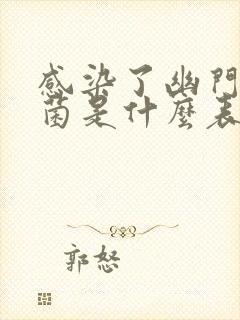 感染了幽門
菌是什麼表
郭怒